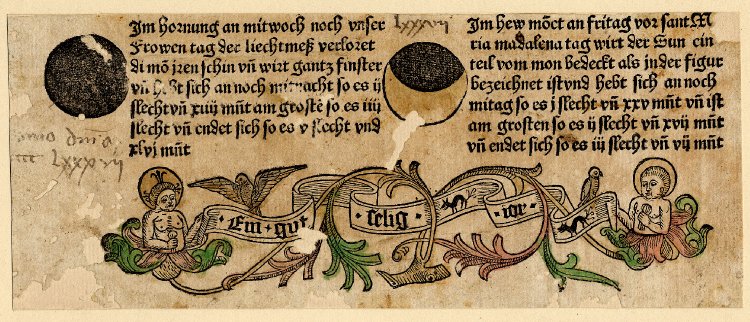 Im hornung an mitwoch noch vnser
Frowen tag der liechtmeß verloret
di mō jren schin vñ wirt gantz finster
vñ sich an noch mitnacht so es ij
slecht vñ xiiij mñt am groste so es iiij
slecht vñ endet sich so es v slecht vnd
xlvj mñt
lxxxvij
Im hew mōct an fritag vor sant M
ria madalena tag wirt der Sun ein
teil vom mon bedeckt als jn der figur
bezeichnet ist vnd hebt sich an noch
mitag so es j slecht vñ xxv mñt vñ ist
am grosten so es ij slecht vñ xvij mñt
vñ endet sich so es iij slecht vñ xvij mñt
anno dm̄o
lxxxvij
Ein · gut · selig · ior ·